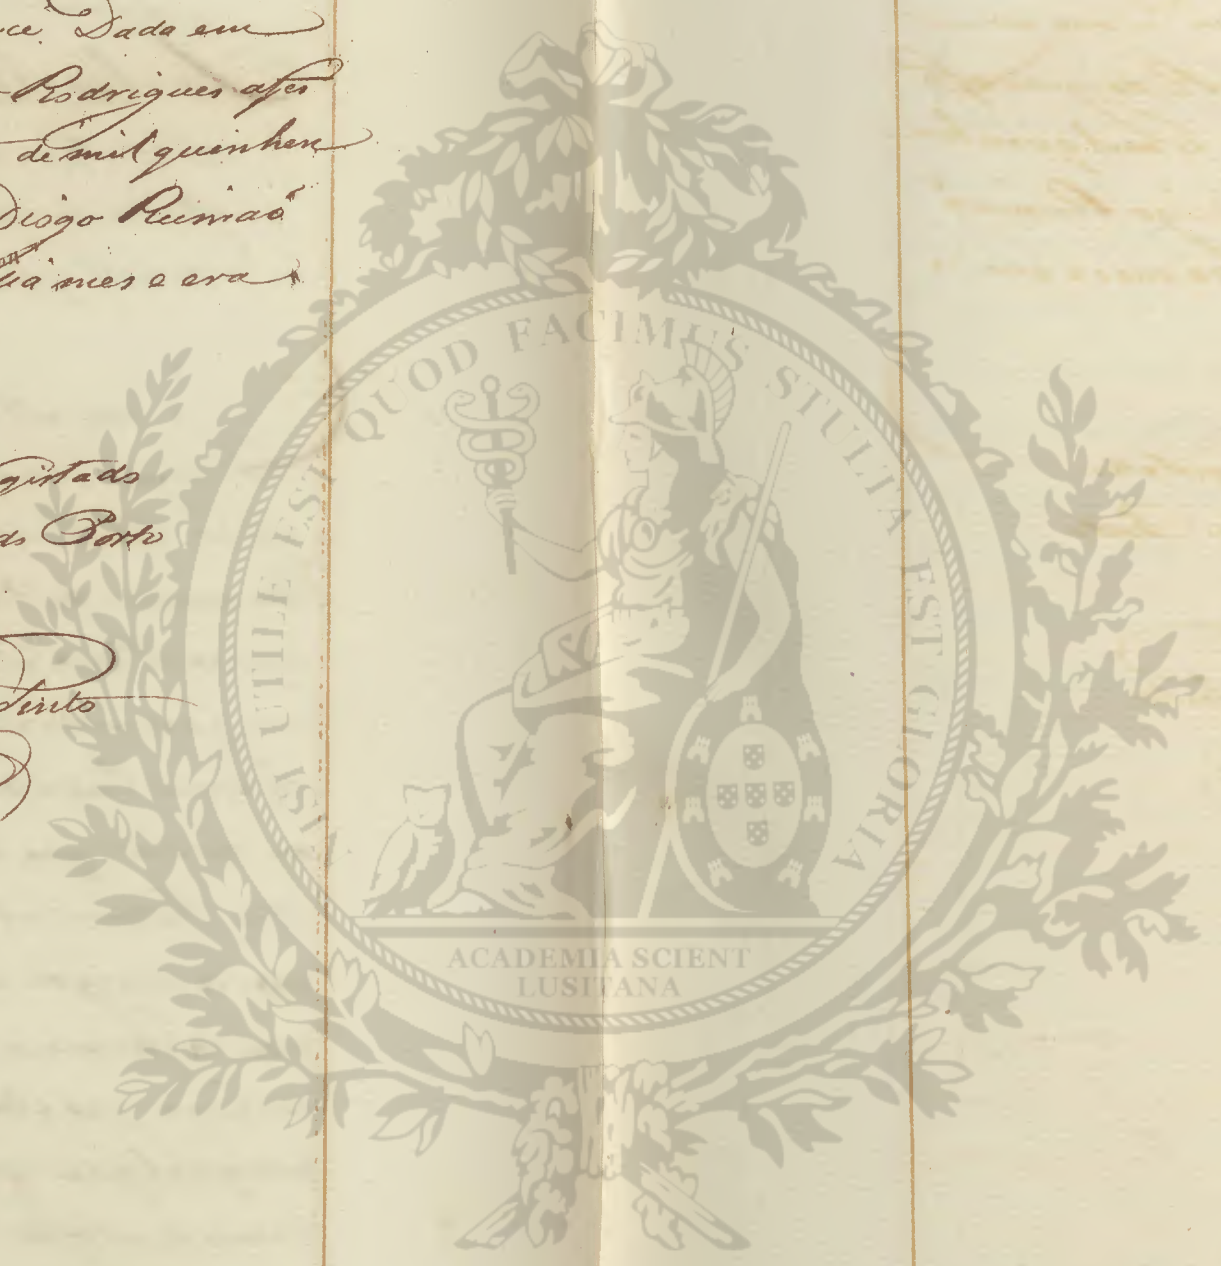 ce. Dada em
Rodrigues a fes
de mil quinhen
Diogo Rumaõ
dia mes e era
gistado
do Porto
Pinto
NISI UTILE EST QUOD FACIMUS STULTA EST GLORIA
ACADEMIA SCIENT
LUSITANA